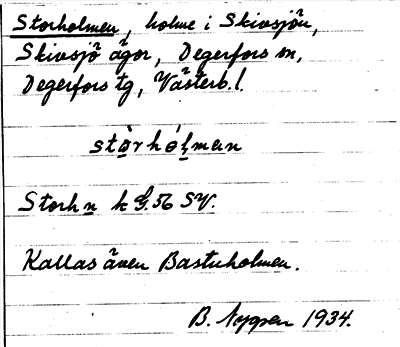 Storholmen, holme i Skivsjön,
Skivsjö ägor, Degerfors sn,
Degerfors tg, Västerb. l.
stòrhólman
Storh n k G. 56 SV.
Kallas även Bastuholmen.
B. Nygren 1934.